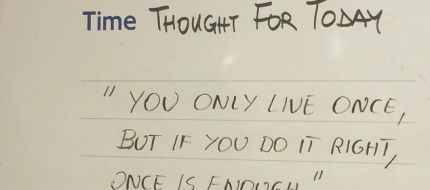 Time THOUGHT FOR TODAY
" YOU ONLY LIVE ONCE,
BUT IF YOU DO IT RIGHT,
ONCE IS ENOUGH "